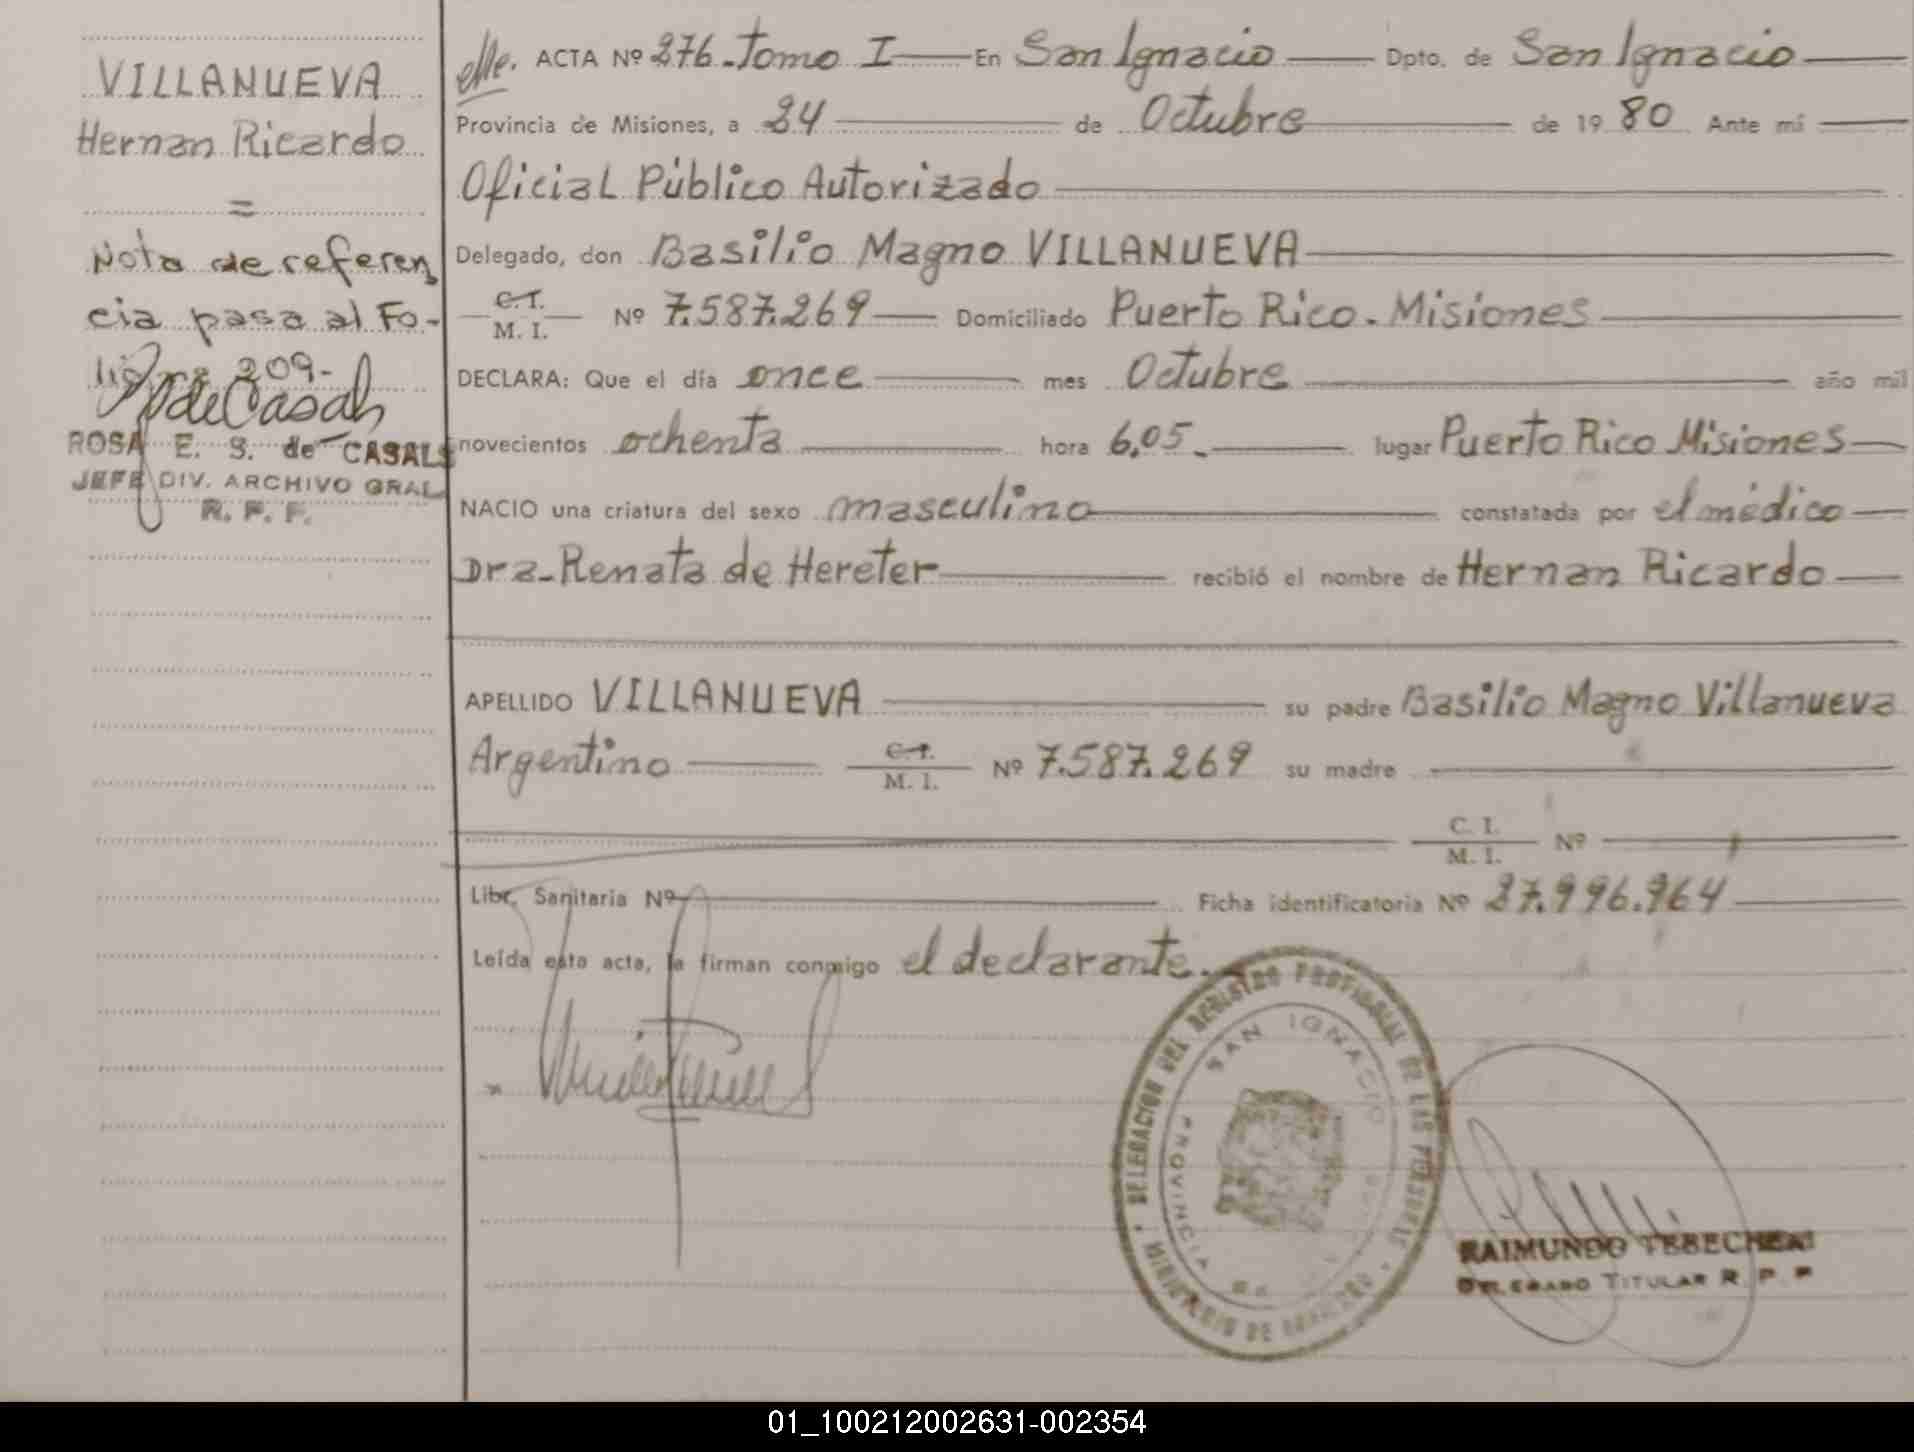 VILLANUEVA
Hernan Ricardo
=
Nota de referen
cia pasa al Fo-
lio nº 209-
ROSA E. S. de CASALS
JEFE DIV. ARCHIVO GRAL
R. P. P.
ACTA Nº 276.Tomo I En San Ignacio Dpto. de San Ignacio
Provincia de Misiones, a 24 de Octubre de 19 80 Ante mí
Oficial Público Autorizado
Delegado, don Basilio Magno VILLANUEVA
C.I.
M. I. Nº 7.587.269 Domiciliado Puerto Rico. Misiones
DECLARA: Que el día once mes Octubre año mil
novecientos ochenta hora 6,05. lugar Puerto Rico Misiones
NACIO una criatura del sexo masculino constatada por el médico
Dra. Renata de Hereter recibió el nombre de Hernan Ricardo
APELLIDO VILLANUEVA su padre Basilio Magno Villanueva
Argentino C.I.
M. I. Nº 7.587.269 su madre
C. I.
M. I. Nº
Libr. Sanitaria Nº Ficha identificatoria Nº 27.996.964
Leída esta acta, la firman conmigo el declarante.
DELEGACION DEL REGISTRO PROVINCIAL DE LAS PERSONAS
SAN IGNACIO
PROVINCIA
MINISTERIO DE GOBIERNO
RAIMUNDO TEBECHERI
DELEGADO TITULAR R. P. P.
01_100212002631-002354